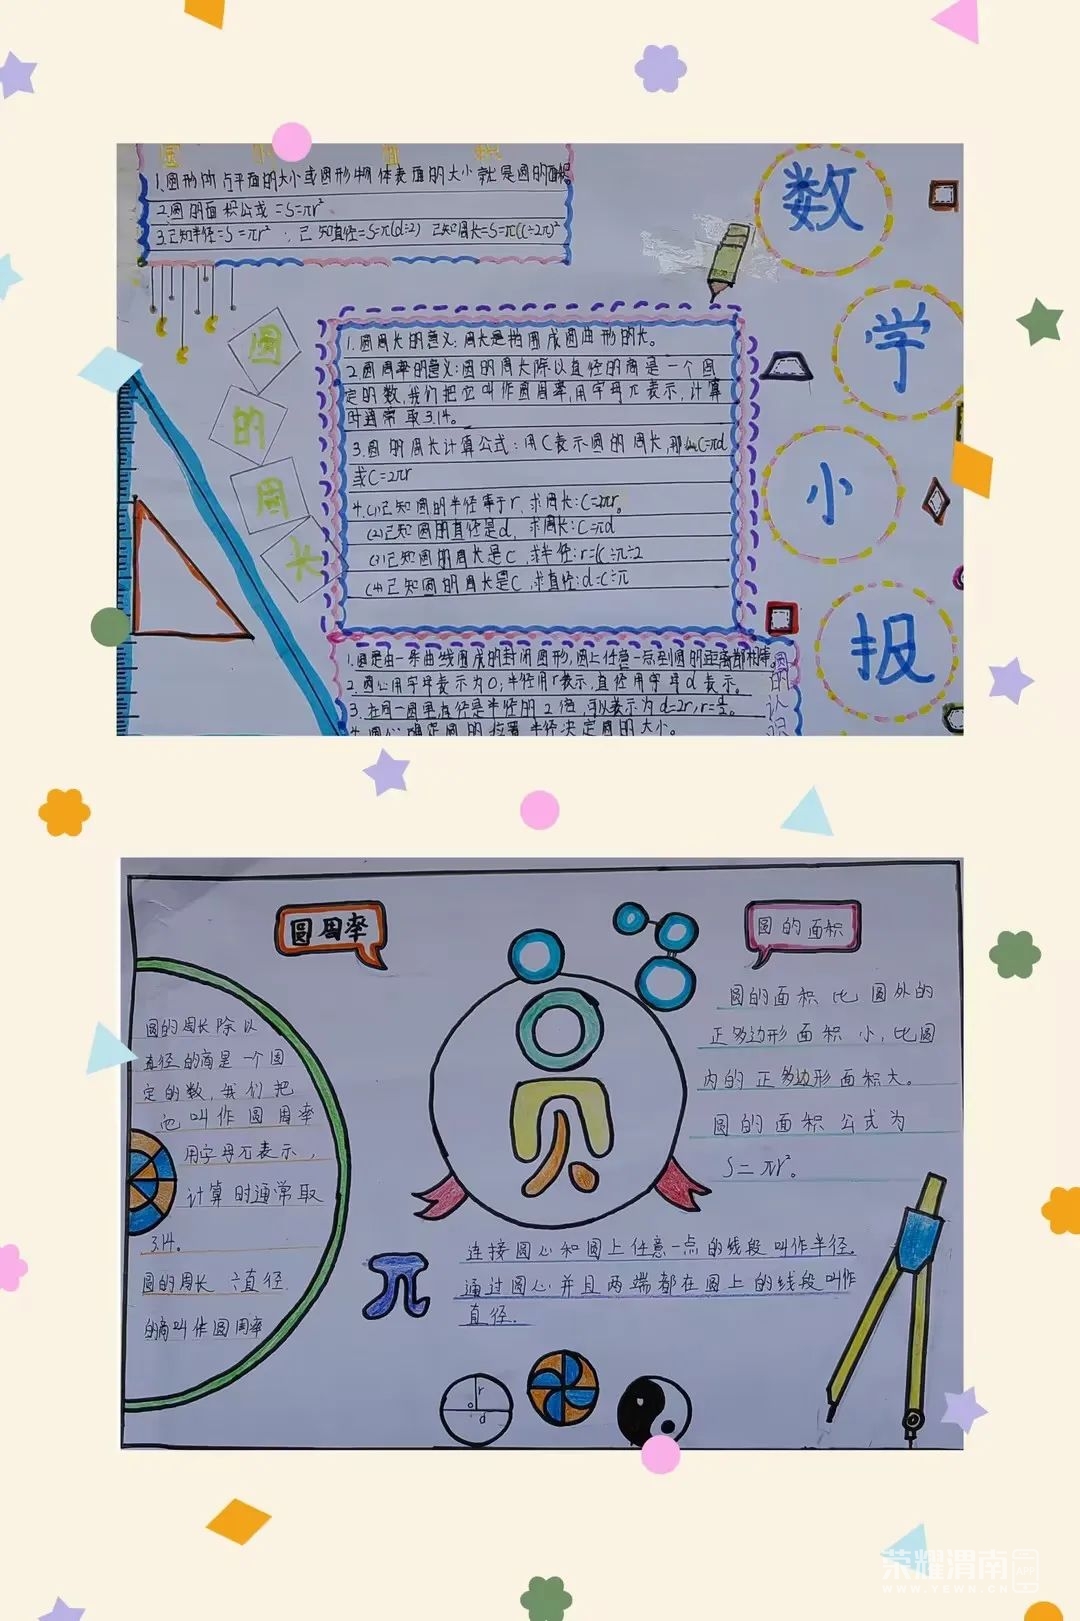 圆的面积
1.圆形所占平面的大小或圆形物体表面的大小就是圆的面积。
2.圆的面积公式=S=πr²
3.已知半径=S=πr²;已知直径=S=π(d÷2)²已知周长=S=π(C÷2π)²
数
学
小
报
圆
的
周
长
1.圆周长的意义:周长是指围成圆曲形的长。
2.圆周率的意义:圆的周长除以直径的商是一个固
定的数,我们把它叫作圆周率,用字母π表示,计算
时通常取3.14。
3.圆的周长计算公式:用C表示圆的周长,那么C=πd
或C=2πr
4.(1)已知圆的半径等于r,求周长:C=2πr。
(2)已知圆的直径是d,求周长:C=πd
(3)已知圆的周长是C,求半径:r=C÷π÷2
(4)已知圆的周长是C,求直径:d=C÷π
1.圆是由一条曲线围成的封闭图形,圆上任意一点到圆的距离都相等。
2.圆心用字母表示为O;半径用r表示,直径用字母d表示。
3.在同一圆里直径是半径的2倍,可以表示为d=2r,r=d/2。
4.圆心确定圆的位置半径决定圆的大小。
圆的认识
圆周率
圆的周长除以
直径的商是一个固
定的数,我们把
它叫作圆周率
用字母π表示,
计算时通常取
3.14。
圆的周长÷直径
的商叫作圆周率
圆
π
圆的面积
圆的面积比圆外的
正多边形面积小,比圆
内的正多边形面积大。
圆的面积公式为
S=πr²。
连接圆心和圆上任意一点的线段叫作半径。
通过圆心并且两端都在圆上的线段叫作
直径.
r
o
d
荣耀渭南
APP
WWW.YEWN.CN